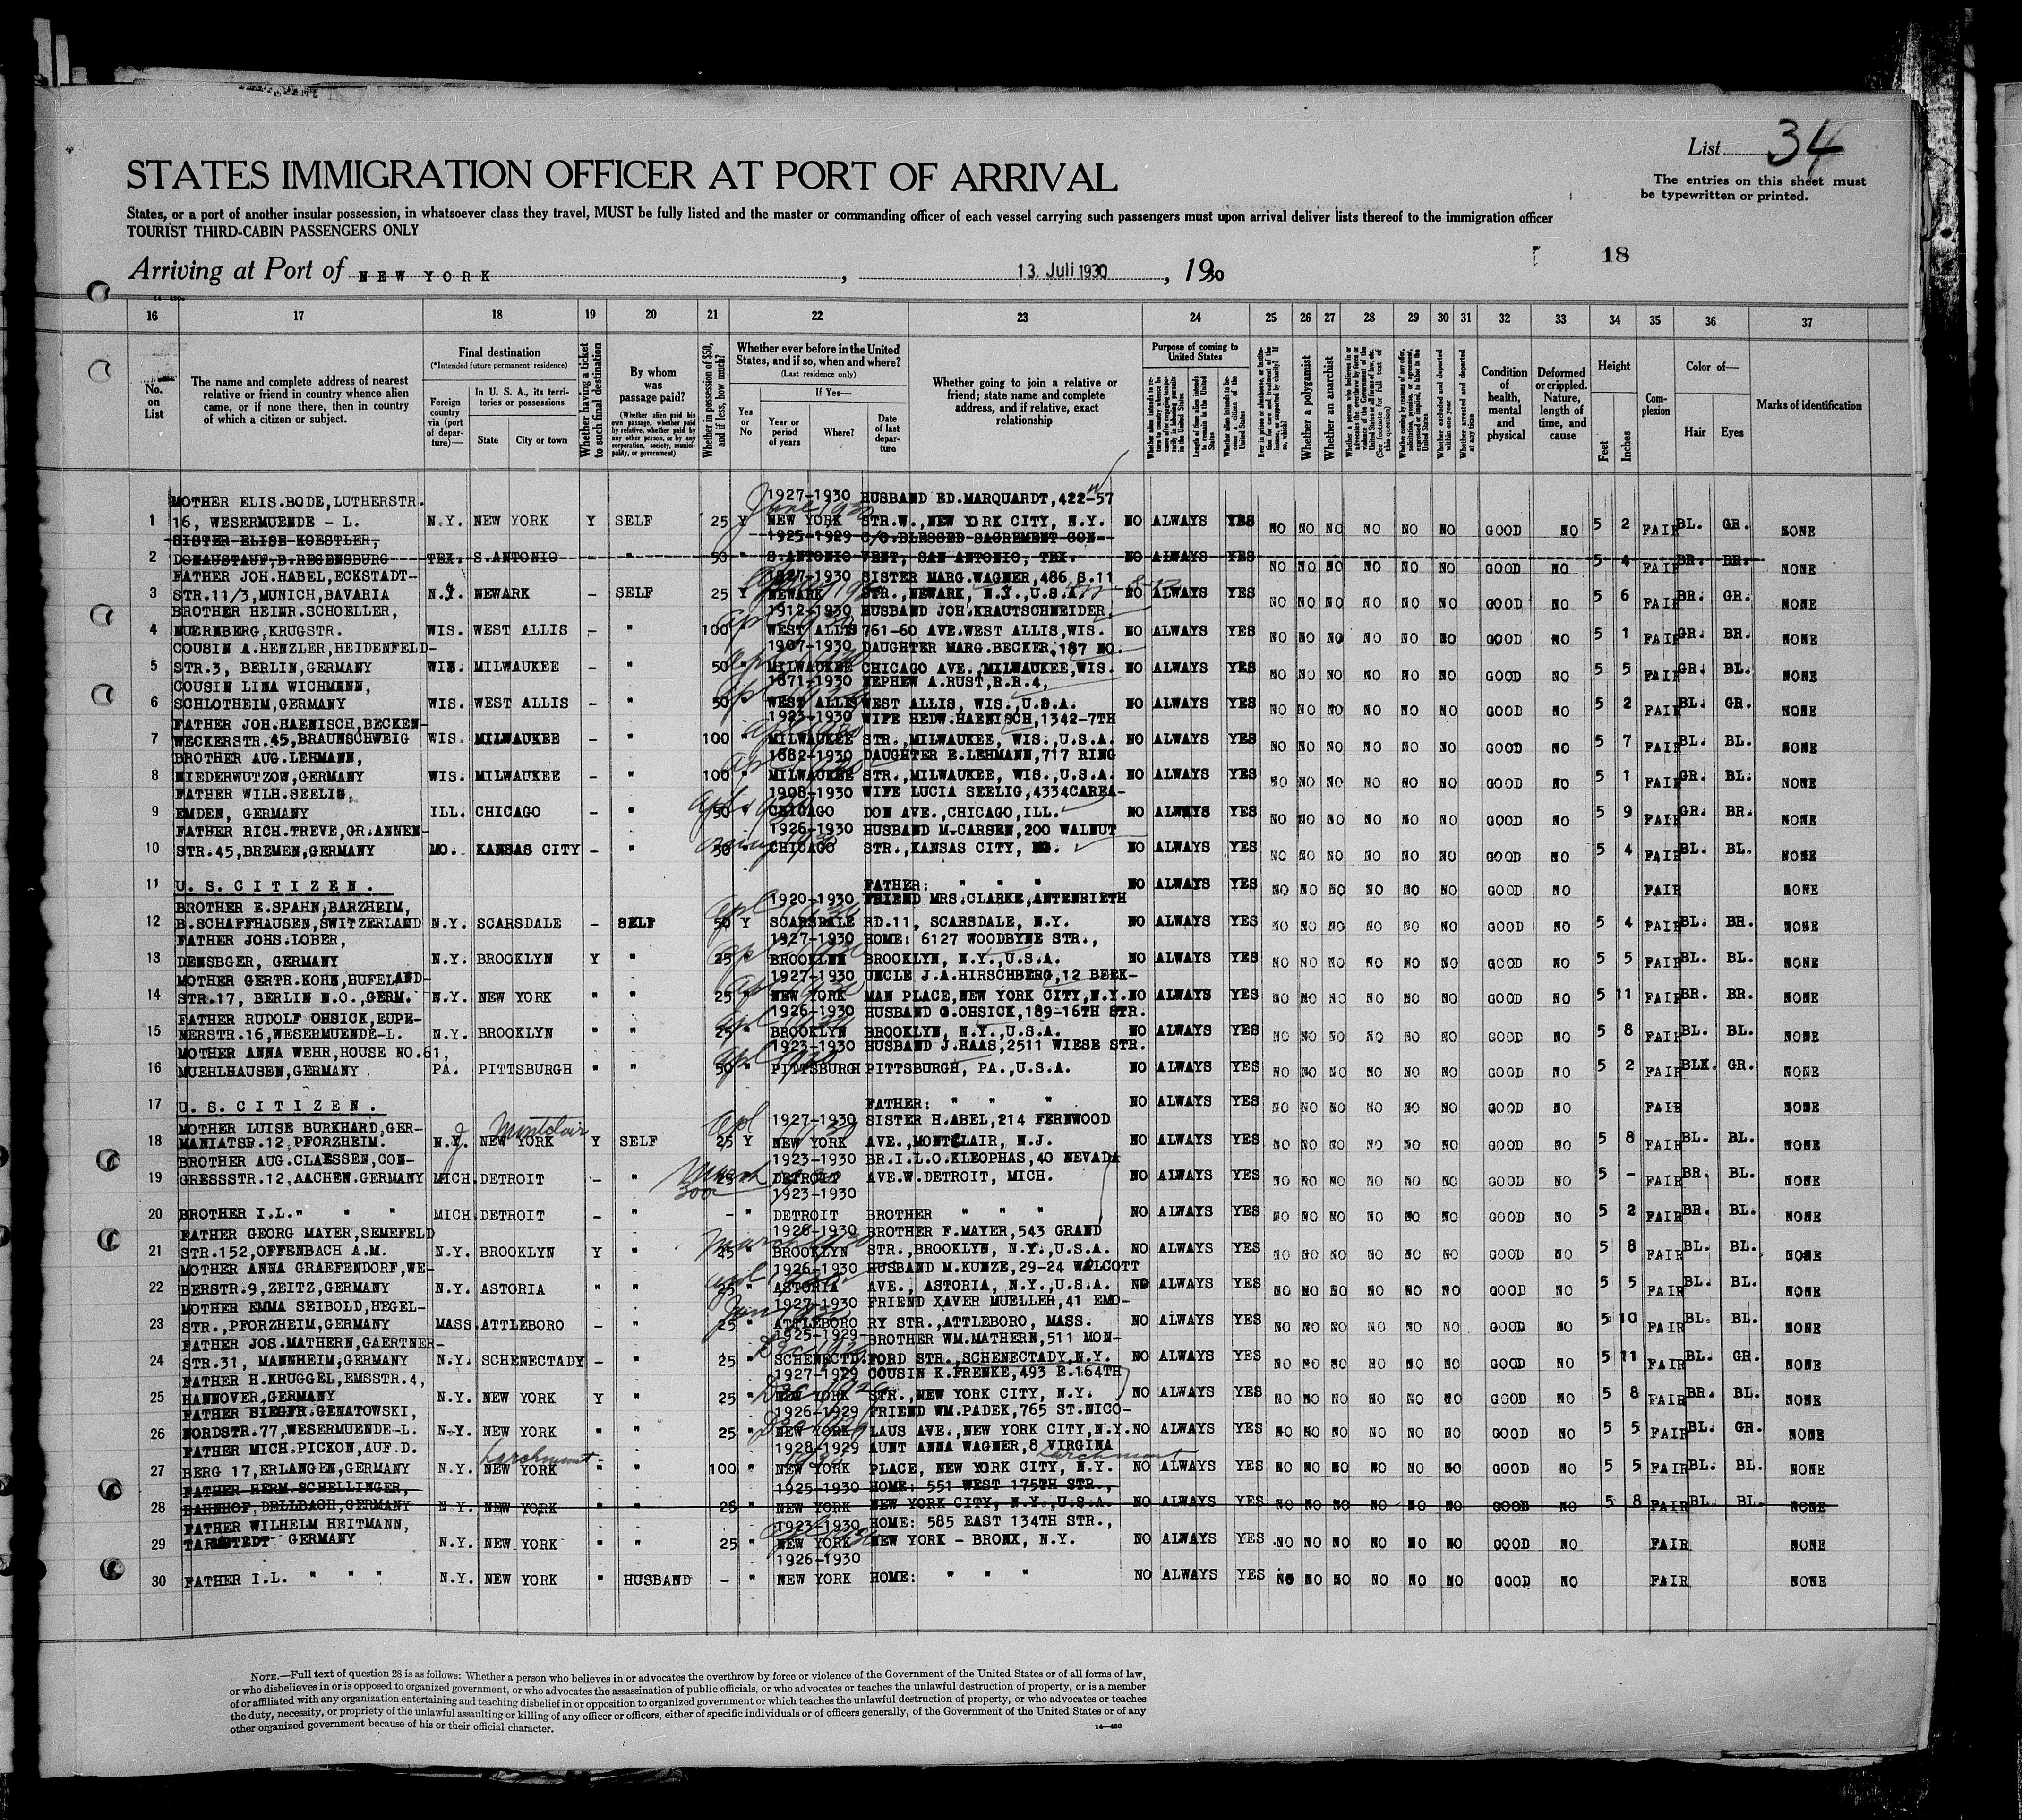 List 34
The entries on this sheet must
be typewritten or printed.
STATES IMMIGRATION OFFICER AT PORT OF ARRIVAL
States, or a port of another insular possession, in whatsoever class they travel, MUST be fully listed and the master or commanding officer of each vessel carrying such passengers must upon arrival deliver lists thereof to the immigration officer
TOURIST THIRD-CABIN PASSENGERS ONLY
18
Arriving at Port of NEW YORK, 13. Juli 1930, 1930
16 17 18 19 20 21 22 23 24 25 26 27 28 29 30 31 32 33 34 35 36 37
No. on List
The name and complete address of nearest relative or friend in country whence alien came, or if none there, then in country of which a citizen or subject.
Final destination
(*Intended future permanent residence)
Foreign country via (port of departure)—
In U. S. A., its territories or possessions
State City or town
Whether having a ticket to such final destination
By whom was passage paid?
(Whether alien paid his own passage, whether paid by relative, whether paid by any other person, or by any corporation, society, municipality, or government)
Whether in possession of $50, and if less, how much?
Whether ever before in the United States, and if so, when and where?
(Last residence only)
Yes or No
If Yes—
Year or period of years
Where?
Date of last departure
Whether going to join a relative or friend; state name and complete address, and if relative, exact relationship
Purpose of coming to United States
Length of time alien intends to remain in the United States
Whether alien intends to become a citizen of the United States
Whether a polygamist
Whether an anarchist
Whether excluded and deported within one year
Whether arrested and deported at any time
Condition of health, mental and physical
Deformed or crippled. Nature, length of time, and cause
Height
Feet Inches
Complexion
Color of—
Hair Eyes
Marks of identification
MOTHER ELIS.BODE,LUTHERSTR. 1927-1930 HUSBAND ED.MARQUARDT,422-57
1 16, WESERMUENDE - L. N.Y. NEW YORK Y SELF 25 Y NEW YORK STR.W.,NEW YORK CITY, N.Y. NO ALWAYS YES NO NO NO NO NO NO GOOD NO 5 2 FAIR BL. GR. NONE
SISTER ELISE KOESTLER, 1925-1929 C/O.BLESSED SAGREMENT CON-
2 DONAUSTAUF,B.REGENSBURG TEX. S.ANTONIO - " 50 " S.ANTONIO VENT, SAN ANTONIO, TEX. NO ALWAYS YES NO NO NO NO NO NO GOOD NO 5 4 FAIR BR. BR. NONE
FATHER JOH.HABEL,ECKSTADT- 1927-1930 SISTER MARG.WAGNER,486 S.11
3 STR.11/3,MUNICH,BAVARIA N.J. NEWARK - SELF 25 Y NEWARK STR.,NEWARK, N.Y.,U.S.A. NO ALWAYS YES NO NO NO NO NO NO GOOD NO 5 6 FAIR BR. GR. NONE
BROTHER HEINR.SCHOELLER, 1912-1930 HUSBAND JOH.KRAUTSCHNEIDER,
4 NUERNBERG,KRUGSTR. WIS. WEST ALLIS - " 100 " WEST ALLIS 761-60 AVE.WEST ALLIS,WIS. NO ALWAYS YES NO NO NO NO NO NO GOOD NO 5 1 FAIR GR. BR. NONE
COUSIN A.HENZLER,HEIDENFELD- 1907-1930 DAUGHTER MARG.BECKER,187 NO.
5 STR.3, BERLIN,GERMANY WIS. MILWAUKEE - " 50 " MILWAUKEE CHICAGO AVE.,MILWAUKEE,WIS. NO ALWAYS YES NO NO NO NO NO NO GOOD NO 5 5 FAIR GR. BL. NONE
COUSIN LINA WICHMANN, 1871-1930 NEPHEW A.RUST,R.R.4,
6 SCHLOTHEIM,GERMANY WIS. WEST ALLIS - " 50 " WEST ALLIS WEST ALLIS, WIS.,U.S.A. NO ALWAYS YES NO NO NO NO NO NO GOOD NO 5 2 FAIR BL. GR. NONE
FATHER JOH.HAENISCH,BECKEN- 1923-1930 WIFE HEDW.HAENISCH,1342-7TH
7 WECKERSTR.45,BRAUNSCHWEIG WIS. MILWAUKEE - " 100 " MILWAUKEE STR.,MILWAUKEE, WIS.,U.S.A. NO ALWAYS YES NO NO NO NO NO NO GOOD NO 5 7 FAIR BL. BL. NONE
BROTHER AUG.LEHMANN, 1882-1930 DAUGHTER E.LEHMANN,717 RING
8 NIEDERWUTZOW,GERMANY WIS. MILWAUKEE - " 100 " MILWAUKEE STR.,MILWAUKEE, WIS.,U.S.A. NO ALWAYS YES NO NO NO NO NO NO GOOD NO 5 1 FAIR GR. BL. NONE
FATHER WILH.SEELIG, 1908-1930 WIFE LUCIA SEELIG,4334CAREA-
9 EMDEN, GERMANY ILL. CHICAGO - " 50 " CHICAGO DON AVE.,CHICAGO,ILL. NO ALWAYS YES NO NO NO NO NO NO GOOD NO 5 9 FAIR GR. BR. NONE
FATHER RICH.TREVE,GR.ANNEN- 1926-1930 HUSBAND M.CARSEN,200 WALNUT
10 STR.45,BREMEN,GERMANY MO. KANSAS CITY - " 50 " CHICAGO STR.,KANSAS CITY, MO. NO ALWAYS YES NO NO NO NO NO NO GOOD NO 5 4 FAIR BL. BL. NONE
11 U.S.CITIZEN. FATHER: " " " NO ALWAYS YES NO NO NO NO NO NO GOOD NO FAIR NONE
BROTHER E.SPAHN,BARZHEIM, 1920-1930 FRIEND MRS.CLARKE,ANTENRIETH
12 B.SCHAFFHAUSEN,SWITZERLAND N.Y. SCARSDALE - SELF 50 Y SCARSDALE RD.11, SCARSDALE, N.Y. NO ALWAYS YES NO NO NO NO NO NO GOOD NO 5 4 FAIR BL. BR. NONE
FATHER JOHS.LOBER, 1927-1930 HOME: 6127 WOODBYNE STR.,
13 DENSBGER, GERMANY N.Y. BROOKLYN Y " 25 " BROOKLYN BROOKLYN, N.Y.,U.S.A. NO ALWAYS YES NO NO NO NO NO NO GOOD NO 5 5 FAIR BL. BL. NONE
MOTHER GERTR.KOHN,HUFELAND- 1927-1930 UNCLE J.A.HIRSCHBERG,12 BEEK-
14 STR.17, BERLIN N.O.,GERM. N.Y. NEW YORK " " 25 " NEW YORK MAN PLACE,NEW YORK CITY,N.Y. NO ALWAYS YES NO NO NO NO NO NO GOOD NO 5 11 FAIR BR. BR. NONE
FATHER RUDOLF OHSICK,EUPE- 1926-1930 HUSBAND G.OHSICK,189-16TH STR.
15 NERSTR.16,WESERMUENDE-L. N.Y. BROOKLYN " " 25 " BROOKLYN BROOKLYN, N.Y.,U.S.A. NO ALWAYS YES NO NO NO NO NO NO GOOD NO 5 8 FAIR BL. BL. NONE
MOTHER ANNA WEHR,HOUSE NO.61, 1923-1930 HUSBAND J.HAAS,2511 WIESE STR.
16 MUEHLHAUSEN,GERMANY PA. PITTSBURGH " " 50 " PITTSBURGH PITTSBURGH, PA.,U.S.A. NO ALWAYS YES NO NO NO NO NO NO GOOD NO 5 2 FAIR BLK. GR. NONE
17 U.S.CITIZEN. FATHER: " " " NO ALWAYS YES NO NO NO NO NO NO GOOD NO FAIR NONE
MOTHER LUISE BURKHARD,GER- Montclair 1927-1930 SISTER H.ABEL,214 FERNWOOD
18 MANIATSR.12,PFORZHEIM. N.J. NEW YORK Y SELF 25 Y NEW YORK AVE.,MONTCLAIR, N.J. NO ALWAYS YES NO NO NO NO NO NO GOOD NO 5 8 FAIR BL. BL. NONE
BROTHER AUG.CLAESSEN,CON- 1923-1930 BR.I.L.O.KLEOPHAS,40 NEVADA
19 GRESSSTR.12,AACHEN.GERMANY MICH. DETROIT - " 25 " DETROIT AVE.W.DETROIT, MICH. NO ALWAYS YES NO NO NO NO NO NO GOOD NO 5 - FAIR BR. BL. NONE
300 1923-1930
20 BROTHER I.L. " " " MICH. DETROIT - " - " DETROIT BROTHER " " " NO ALWAYS YES NO NO NO NO NO NO GOOD NO 5 2 FAIR BR. BL. NONE
FATHER GEORG MAYER,SEMEFELD 1926-1930 BROTHER F.MAYER,543 GRAND
21 STR.152,OFFENBACH A.M. N.Y. BROOKLYN Y " 25 " BROOKLYN STR.,BROOKLYN, N.Y.,U.S.A. NO ALWAYS YES NO NO NO NO NO NO GOOD NO 5 8 FAIR BL. BL. NONE
MOTHER ANNA GRAEFENDORF,WE- 1926-1930 HUSBAND M.KUNZE,29-24 WALCOTT
22 BERSTR.9,ZEITZ,GERMANY N.Y. ASTORIA " " 25 " ASTORIA AVE., ASTORIA, N.Y.,U.S.A. NO ALWAYS YES NO NO NO NO NO NO GOOD NO 5 5 FAIR BL. BL. NONE
MOTHER EMMA SEIBOLD,HEGEL- 1927-1930 FRIEND XAVER MUELLER,41 EMO-
23 STR.,PFORZHEIM,GERMANY MASS. ATTLEBORO - " 25 " ATTLEBORO RY STR.,ATTLEBORO, MASS. NO ALWAYS YES NO NO NO NO NO NO GOOD NO 5 10 FAIR BL. BL. NONE
FATHER JOS.MATHERN,GAERTNER- 1925-1929 BROTHER WM.MATHERN,511 MON-
24 STR.31, MANNHEIM,GERMANY N.Y. SCHENECTADY - " 25 " SCHENECTD. FORD STR.,SCHENECTADY,N.Y. NO ALWAYS YES NO NO NO NO NO NO GOOD NO 5 11 FAIR BL. GR. NONE
FATHER H.KRUGGEL,EMSSTR.4, 1927-1929 COUSIN K.FRENKE,493 E.164TH
25 HANNOVER,GERMANY N.Y. NEW YORK Y " 25 " NEW YORK STR.,NEW YORK CITY, N.Y. NO ALWAYS YES NO NO NO NO NO NO GOOD NO 5 8 FAIR BR. BL. NONE
FATHER SIEGFR.GENATOWSKI, 1926-1929 FRIEND WM.PADEK,765 ST.NICO-
26 NORDSTR.77,WESERMUENDE-L. N.Y. NEW YORK " " 25 " NEW YORK LAUS AVE.,NEW YORK CITY,N.Y. NO ALWAYS YES NO NO NO NO NO NO GOOD NO 5 5 FAIR BL. GR. NONE
FATHER MICH.PICKON,AUF.D. Larchmont 1928-1929 AUNT ANNA WAGNER,8 VIRGINA Larchmont
27 BERG 17,ERLANGEN,GERMANY N.Y. NEW YORK " " 100 " NEW YORK PLACE, NEW YORK CITY, N.Y. NO ALWAYS YES NO NO NO NO NO NO GOOD NO 5 5 FAIR BL. BL. NONE
FATHER HERM.SCHELLINGER, 1925-1930 HOME: 551 WEST 175TH STR.,
28 BAHNHOF,DELLBACH,GERMANY N.Y. NEW YORK " " 25 " NEW YORK NEW YORK CITY, N.Y.,U.S.A. NO ALWAYS YES NO NO NO NO NO NO GOOD NO 5 8 FAIR BL. BL. NONE
FATHER WILHELM HEITMANN, 1923-1930 HOME: 585 EAST 134TH STR.,
29 TARMSTEDT GERMANY N.Y. NEW YORK " " 25 " NEW YORK NEW YORK - BRONX, N.Y. NO ALWAYS YES NO NO NO NO NO NO GOOD NO FAIR NONE
1926-1930
30 FATHER I.L. " " " N.Y. NEW YORK " HUSBAND - " NEW YORK HOME: " " " NO ALWAYS YES NO NO NO NO NO NO GOOD NO FAIR NONE
NOTE.—Full text of question 28 is as follows: Whether a person who believes in or advocates the overthrow by force or violence of the Government of the United States or of all forms of law,
or who disbelieves in or is opposed to organized government, or who advocates the assassination of public officials, or who advocates or teaches the unlawful destruction of property, or is a member
of or affiliated with any organization entertaining and teaching disbelief in or opposition to organized government or which teaches the unlawful destruction of property, or who advocates or teaches
the duty, necessity, or propriety of the unlawful assaulting or killing of any officer or officers, either of specific individuals or of officers generally, of the Government of the United States or of any
other organized government because of his or their official character.
14—430